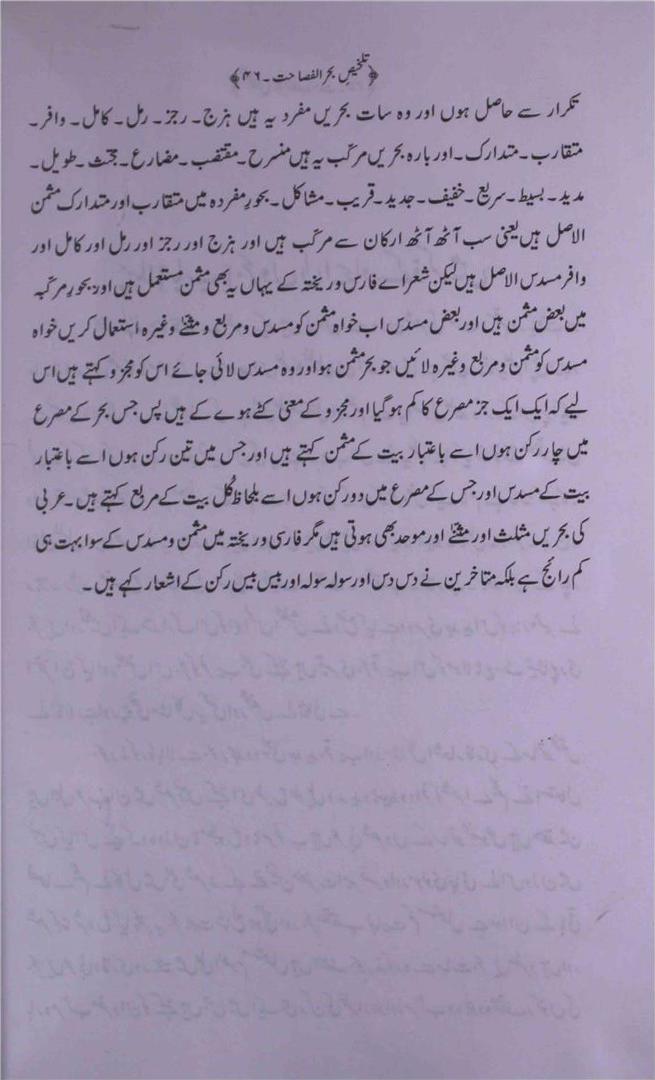 ﴿تلخیصِ بحر الفصاحت۔۴۶﴾
تکرار سے حاصل ہوں اور وہ سات بحریں مفرد یہ ہیں ہزج۔ رجز۔ رمل۔ کامل۔ وافر۔
متقارب۔ متدارک۔ اور بارہ بحریں مرکّب یہ ہیں منسرح۔ مقتضب۔ مضارع۔ مجتث۔ طویل۔
مدید۔ بسیط۔ سریع۔ خفیف۔ جدید۔ قریب۔ مشاکل۔ بحورِ مفردہ میں متقارب اور متدارک مثمن
الاصل ہیں یعنی سب آٹھ آٹھ ارکان سے مرکّب ہیں اور ہزج اور رجز اور رمل اور کامل اور
وافر مسدس الاصل ہیں لیکن شعراے فارس و ریختہ کے یہاں یہ بھی مثمن مستعمل ہیں اور بحورِ مرکّبہ
میں بعض مثمن ہیں اور بعض مسدس اب خواہ مثمن کو مسدس و مربع و مثنّےٰ وغیرہ استعمال کریں خواہ
مسدس کو مثمن و مربع وغیرہ لائیں جو بحر مثمن ہو اور وہ مسدس لائی جائے اس کو مجزو کہتے ہیں اس
لیے کہ ایک ایک جز مصرع کا کم ہو گیا اور مجزو کے معنی کٹے ہوے کے ہیں پس جس بحر کے مصرع
میں چار رکن ہوں اسے باعتبار بیت کے مثمن کہتے ہیں اور جس میں تین رکن ہوں اسے باعتبار
بیت کے مسدس اور جس کے مصرع میں دو رکن ہوں اسے بلحاظ کُل بیت کے مربع کہتے ہیں۔ عربی
کی بحریں مثلث اور مثنّےٰ اور موحد بھی ہوتی ہیں مگر فارسی و ریختہ میں مثمن و مسدس کے سوا بہت ہی
کم رائج ہے بلکہ متاخرین نے دس دس اور سولہ سولہ اور بیس بیس رکن کے اشعار کہے ہیں۔